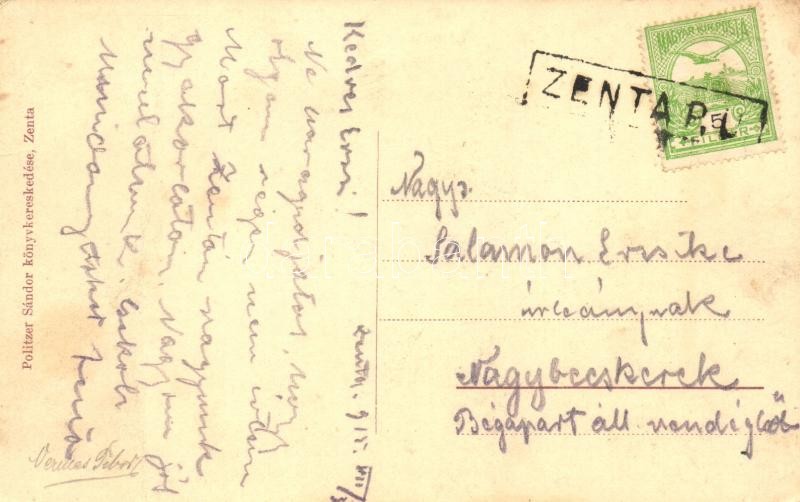 Politzer Sándor könyvkereskedése, Zenta
Kedves Erzsi!
Ne haragudjatok, hogy
olyan régen nem írtam
Mert Zentán vagyunk
Nagyon jól
mulatunk. csókol
Jenő
Zenta. 915. VII/
MAGYAR KIR. POSTA
5
FILLÉR
ZENTA P.
Nagys.
Salamon Erzsike
úrleánynak
Nagybecskerek
Bégapart áll. vendéglő
Vermes Tibor